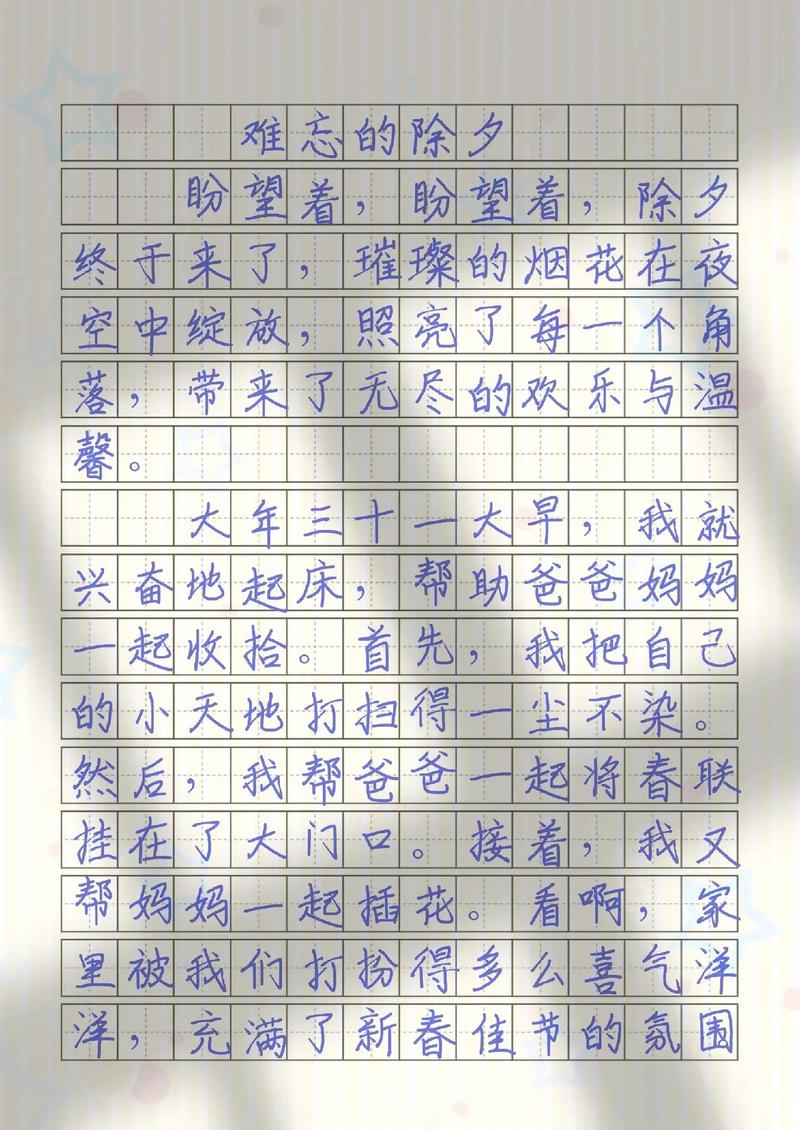 难忘的除夕
盼望着，盼望着，除夕
终于来了，璀璨的烟花在夜
空中绽放，照亮了每一个角
落，带来了无尽的欢乐与温
馨。
大年三十一大早，我就
兴奋地起床，帮助爸爸妈妈
一起收拾。首先，我把自己
的小天地打扫得一尘不染。
然后，我帮爸爸一起将春联
挂在了大门口。接着，我又
帮妈妈一起插花。看啊，家
里被我们打扮得多么喜气洋
洋，充满了新春佳节的氛围